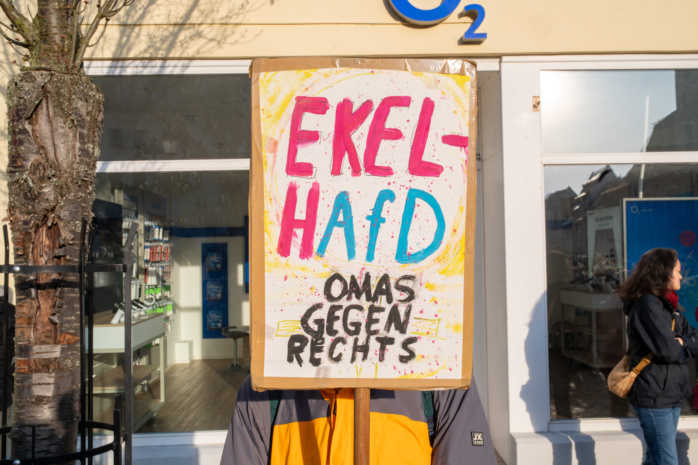 O2
EKEL-
HAfD
OMAS
GEGEN
RECHTS
JX